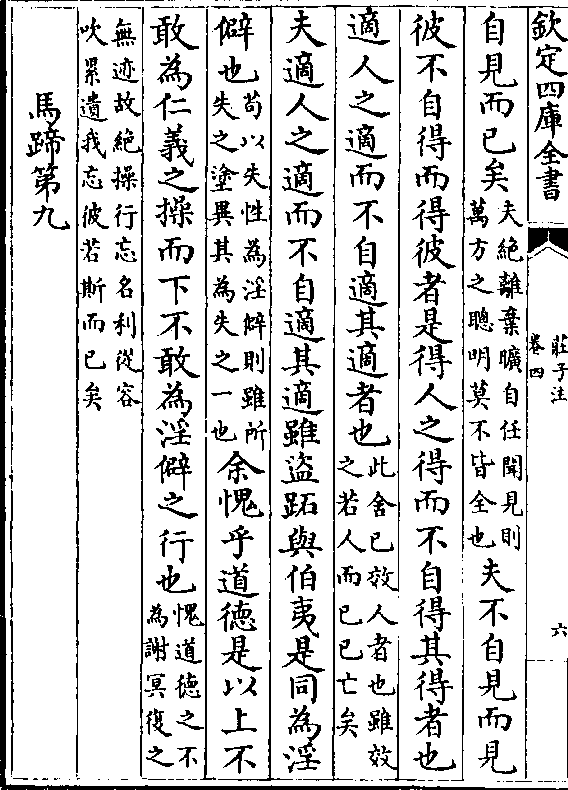 欽定四庫全書
莊子注
卷四
六
自見而已矣夫絶離棄曠自任聞見則萬方之聰明莫不皆全也夫不自見而見
彼不自得而得彼者是得人之得而不自得其得者也
適人之適而不自適其適者也此舍已效人者也雖效之若人而已已亡矣
夫適人之適而不自適其適雖盜跖與伯夷是同為淫
僻也苟以失性為淫僻則雖所失之塗異其為失之一也余愧乎道德是以上不
敢為仁義之操而下不敢為淫僻之行也愧道德之不為謝冥復之
無迹故絶操行忘名利從容吹累遺我忘彼若斯而已矣
馬蹄第九